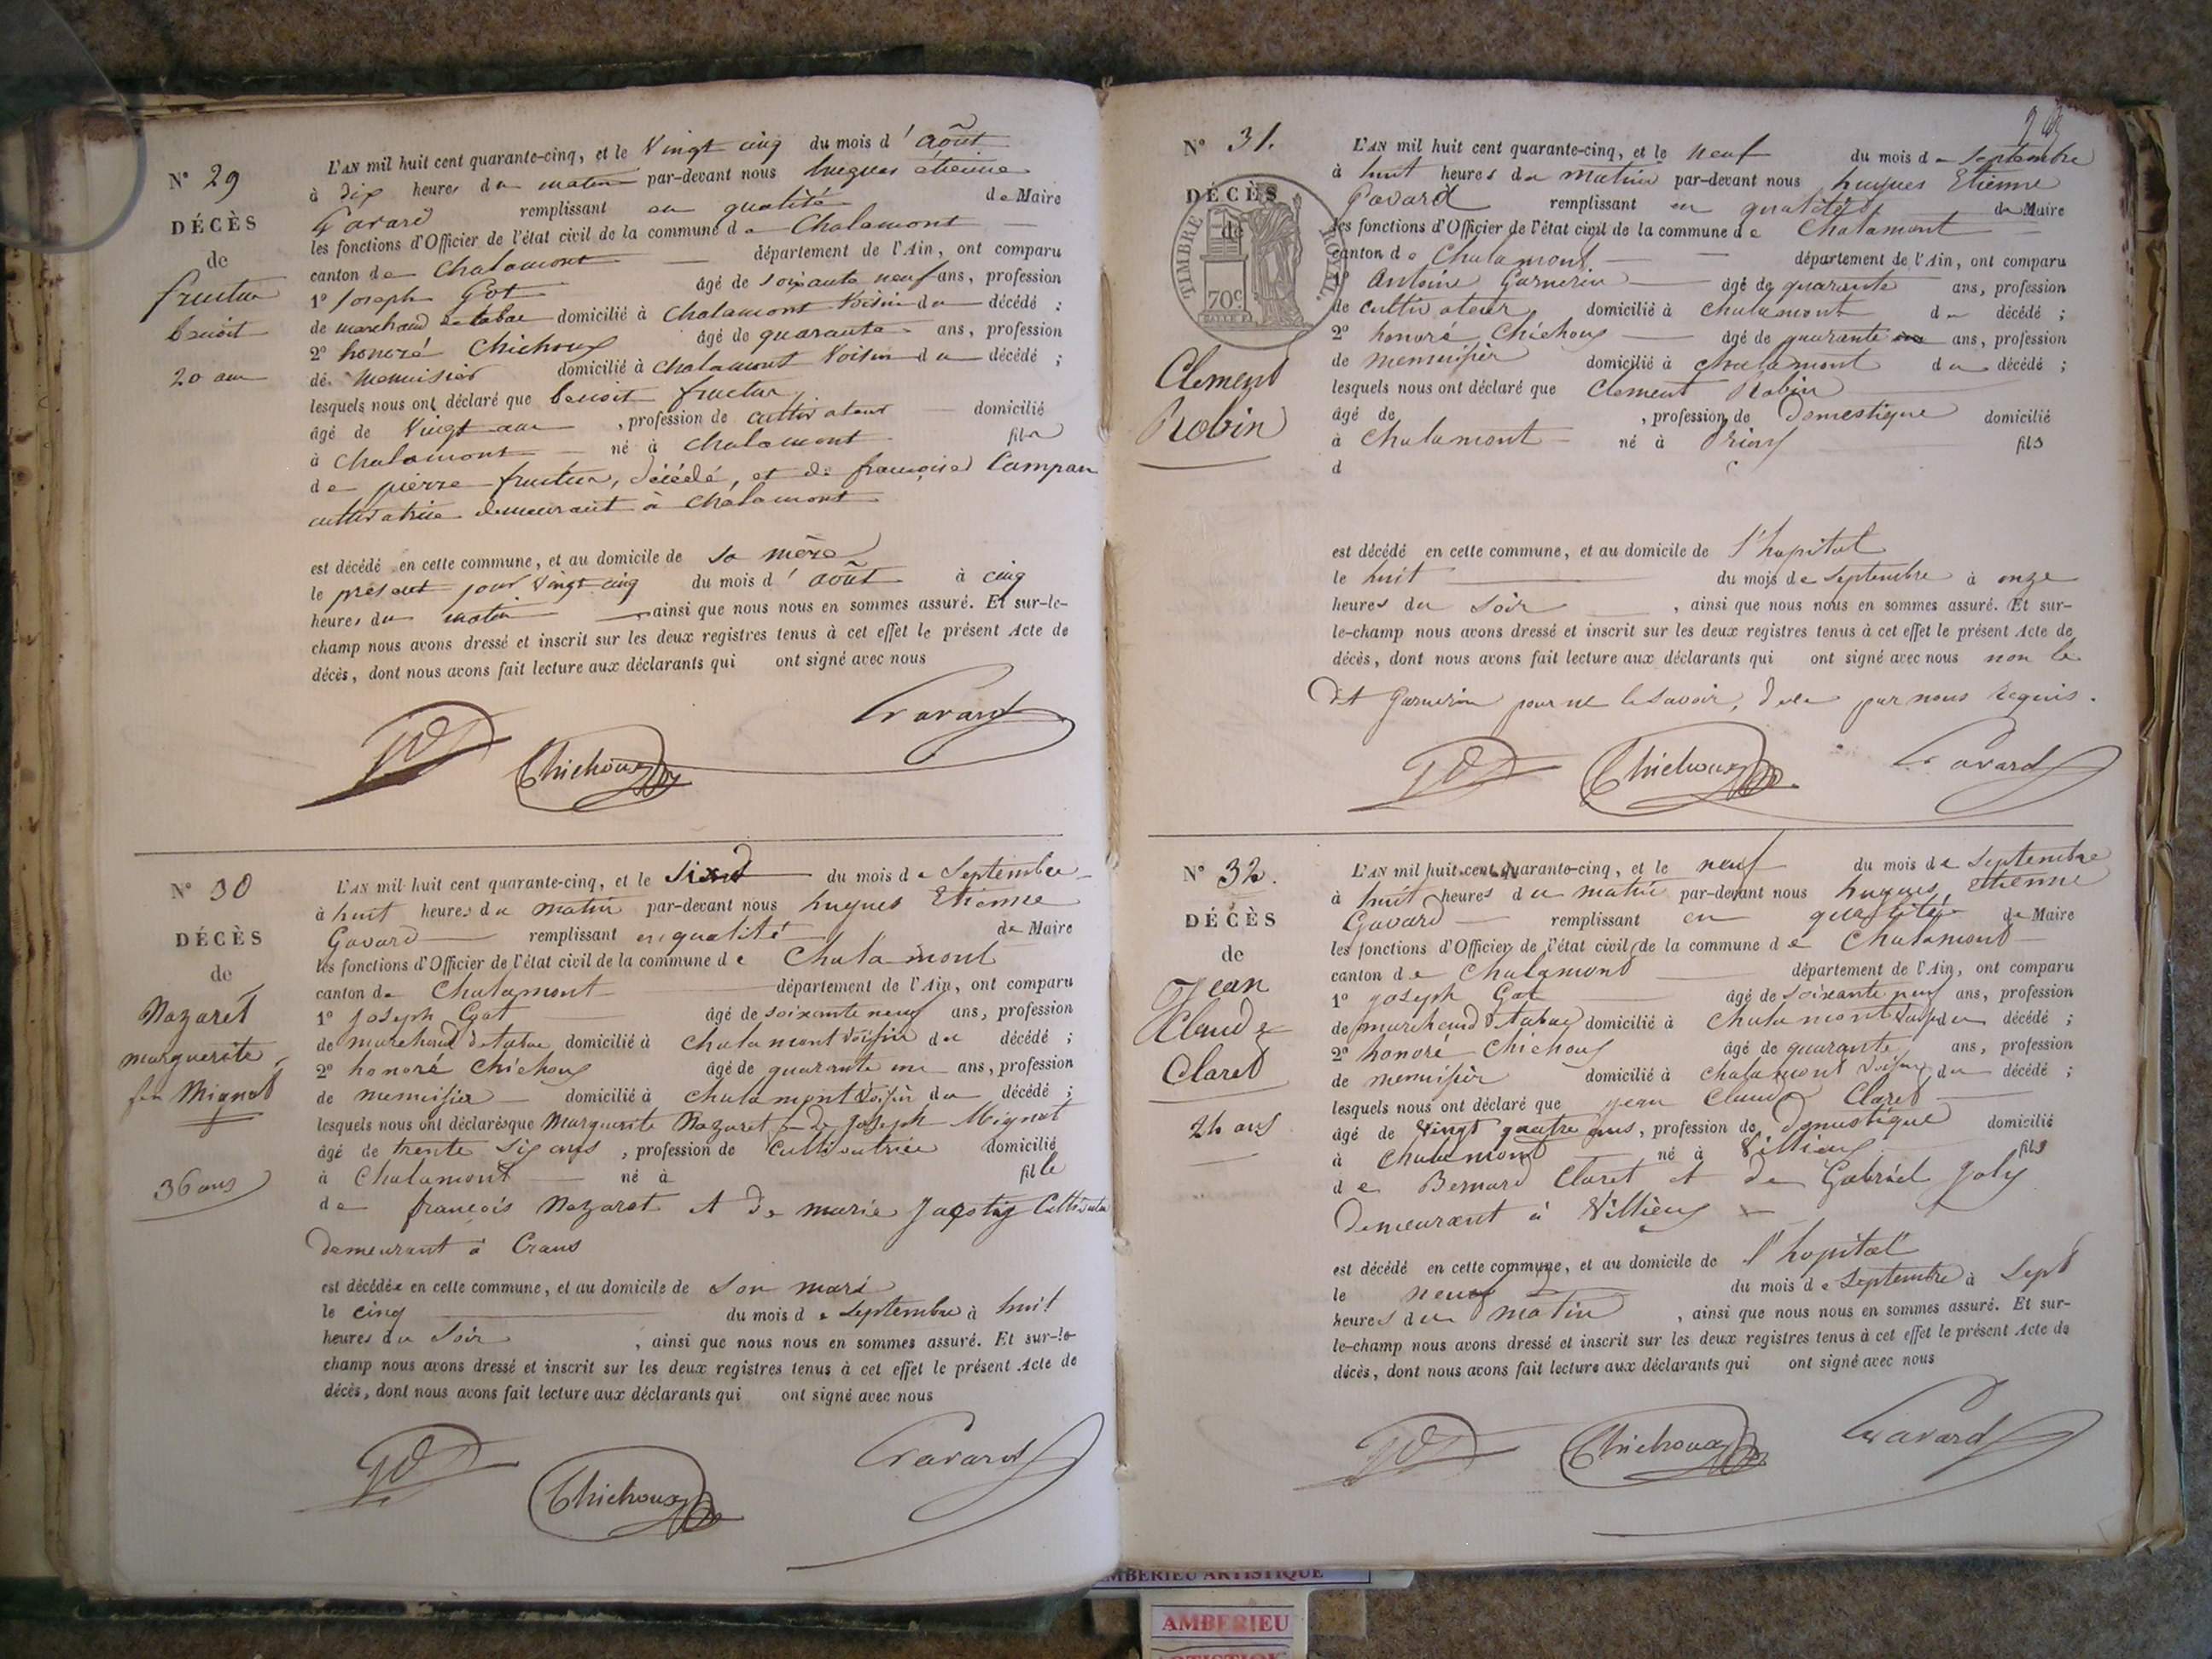 N° 29
DÉCÈS
de
fructus
benoit
20 ans
L'AN mil huit cent quarante-cinq, et le Vingt cinq du mois d'août
à dix heures du matin par-devant nous hugues étienne
Gavard remplissant en qualité de Maire
les fonctions d'Officier de l'état civil de la commune de Chalamont
canton de Chalamont département de l'Ain, ont comparu
1° Joseph Got âgé de soixante neuf ans, profession
de marchand de tabac domicilié à Chalamont Voisin du décédé ;
2° honoré Chichoux âgé de quarante ans, profession
de Menuisier domicilié à Chalamont Voisin du décédé ;
lesquels nous ont déclaré que benoit fructus
âgé de Vingt ans , profession de cultivateur domicilié
à Chalamont né à Chalamont fils
de pierre fructus, décédé, et de françoise Campan
cultivatrice demeurant à Chalamont
est décédé en cette commune, et au domicile de sa mère
le présent jour Vingt cinq du mois d'août à cinq
heures du matin ainsi que nous nous en sommes assuré. Et sur-le-
champ nous avons dressé et inscrit sur les deux registres tenus à cet effet le présent Acte de
décès, dont nous avons fait lecture aux déclarants qui ont signé avec nous
Got Chichoux Gavard
N° 30
DÉCÈS
de
Nazaret
marguerite
fe Mignat
36 ans
L'AN mil huit cent quarante-cinq, et le Six du mois de Septembre
à huit heures du matin par-devant nous hugues Etienne
Gavard remplissant en qualité de Maire
les fonctions d'Officier de l'état civil de la commune de Chalamont
canton de Chalamont département de l'Ain, ont comparu
1° Joseph Got âgé de soixante neuf ans, profession
de marchand de tabac domicilié à Chalamont Voisin du décédé ;
2° honoré Chichoux âgé de quarante un ans, profession
de menuisier domicilié à Chalamont Voisin du décédé ;
lesquels nous ont déclarés que Marguerite Nazaret fe de Joseph Mignat
âgé de trente six ans , profession de Cultivatrice domicilié
à Chalamont né à fille
de françois Nazaret et de marie Cultivateur
demeurant à Crans
est décédée en cette commune, et au domicile de son mari
le cinq du mois de septembre à huit
heures du soir , ainsi que nous nous en sommes assuré. Et sur-le-
champ nous avons dressé et inscrit sur les deux registres tenus à cet effet le présent Acte de
décès, dont nous avons fait lecture aux déclarants qui ont signé avec nous
Got Chichoux Gavard
N° 31.
DÉCÈS
de
TIMBRE ROYAL.
70c
Clement
Robin
L'AN mil huit cent quarante-cinq, et le neuf du mois de Septembre
à huit heures du matin par-devant nous hugues Etienne
Gavard remplissant en qualité de Maire
les fonctions d'Officier de l'état civil de la commune de Chalamont
canton de Chalamont département de l'Ain, ont comparu
1° Antoine Garnerin âgé de quarante ans, profession
de cultivateur domicilié à Chalamont du décédé ;
2° honoré Chichoux âgé de quarante ans, profession
de menuisier domicilié à Chalamont du décédé ;
lesquels nous ont déclaré que Clement Robin
âgé de , profession de Domestique domicilié
à Chalamont né à fils
d
est décédé en cette commune, et au domicile de l'hopital
le huit du mois de Septembre à onze
heures du Soir , ainsi que nous nous en sommes assuré. Et sur-
le-champ nous avons dressé et inscrit sur les deux registres tenus à cet effet le présent Acte de
décès, dont nous avons fait lecture aux déclarants qui ont signé avec nous non le
dit Garnerin pour ne le savoir, de ce par nous requis.
Got Chichoux Gavard
N° 32.
DÉCÈS
de
Jean
Claude
Claret
24 ans
L'AN mil huit cent quarante-cinq, et le neuf du mois de Septembre
à huit heures du matin par-devant nous hugues Etienne
Gavard remplissant en qualité de Maire
les fonctions d'Officier de l'état civil de la commune de Chalamont
canton de Chalamont département de l'Ain, ont comparu
1° Joseph Got âgé de soixante neuf ans, profession
de marchand de tabac domicilié à Chalamont Voisin du décédé ;
2° honoré Chichoux âgé de quarante ans, profession
de menuisier domicilié à Chalamont Voisin du décédé ;
lesquels nous ont déclaré que jean Claude Claret
âgé de vingt quatre ans, profession de domestique domicilié
à Chalamont né à Villieux fils
de Bernard Claret et de Gabriel Joly
Demeurant à Villieux
est décédé en cette commune, et au domicile de l'hopital
le neuf du mois de Septembre à Sept
heures du matin , ainsi que nous nous en sommes assuré. Et sur-
le-champ nous avons dressé et inscrit sur les deux registres tenus à cet effet le présent Acte de
décès, dont nous avons fait lecture aux déclarants qui ont signé avec nous
Got Chichoux Gavard
AMBERIEU ARTISTIQUE
AMBERIEU
ARTISTIQUE